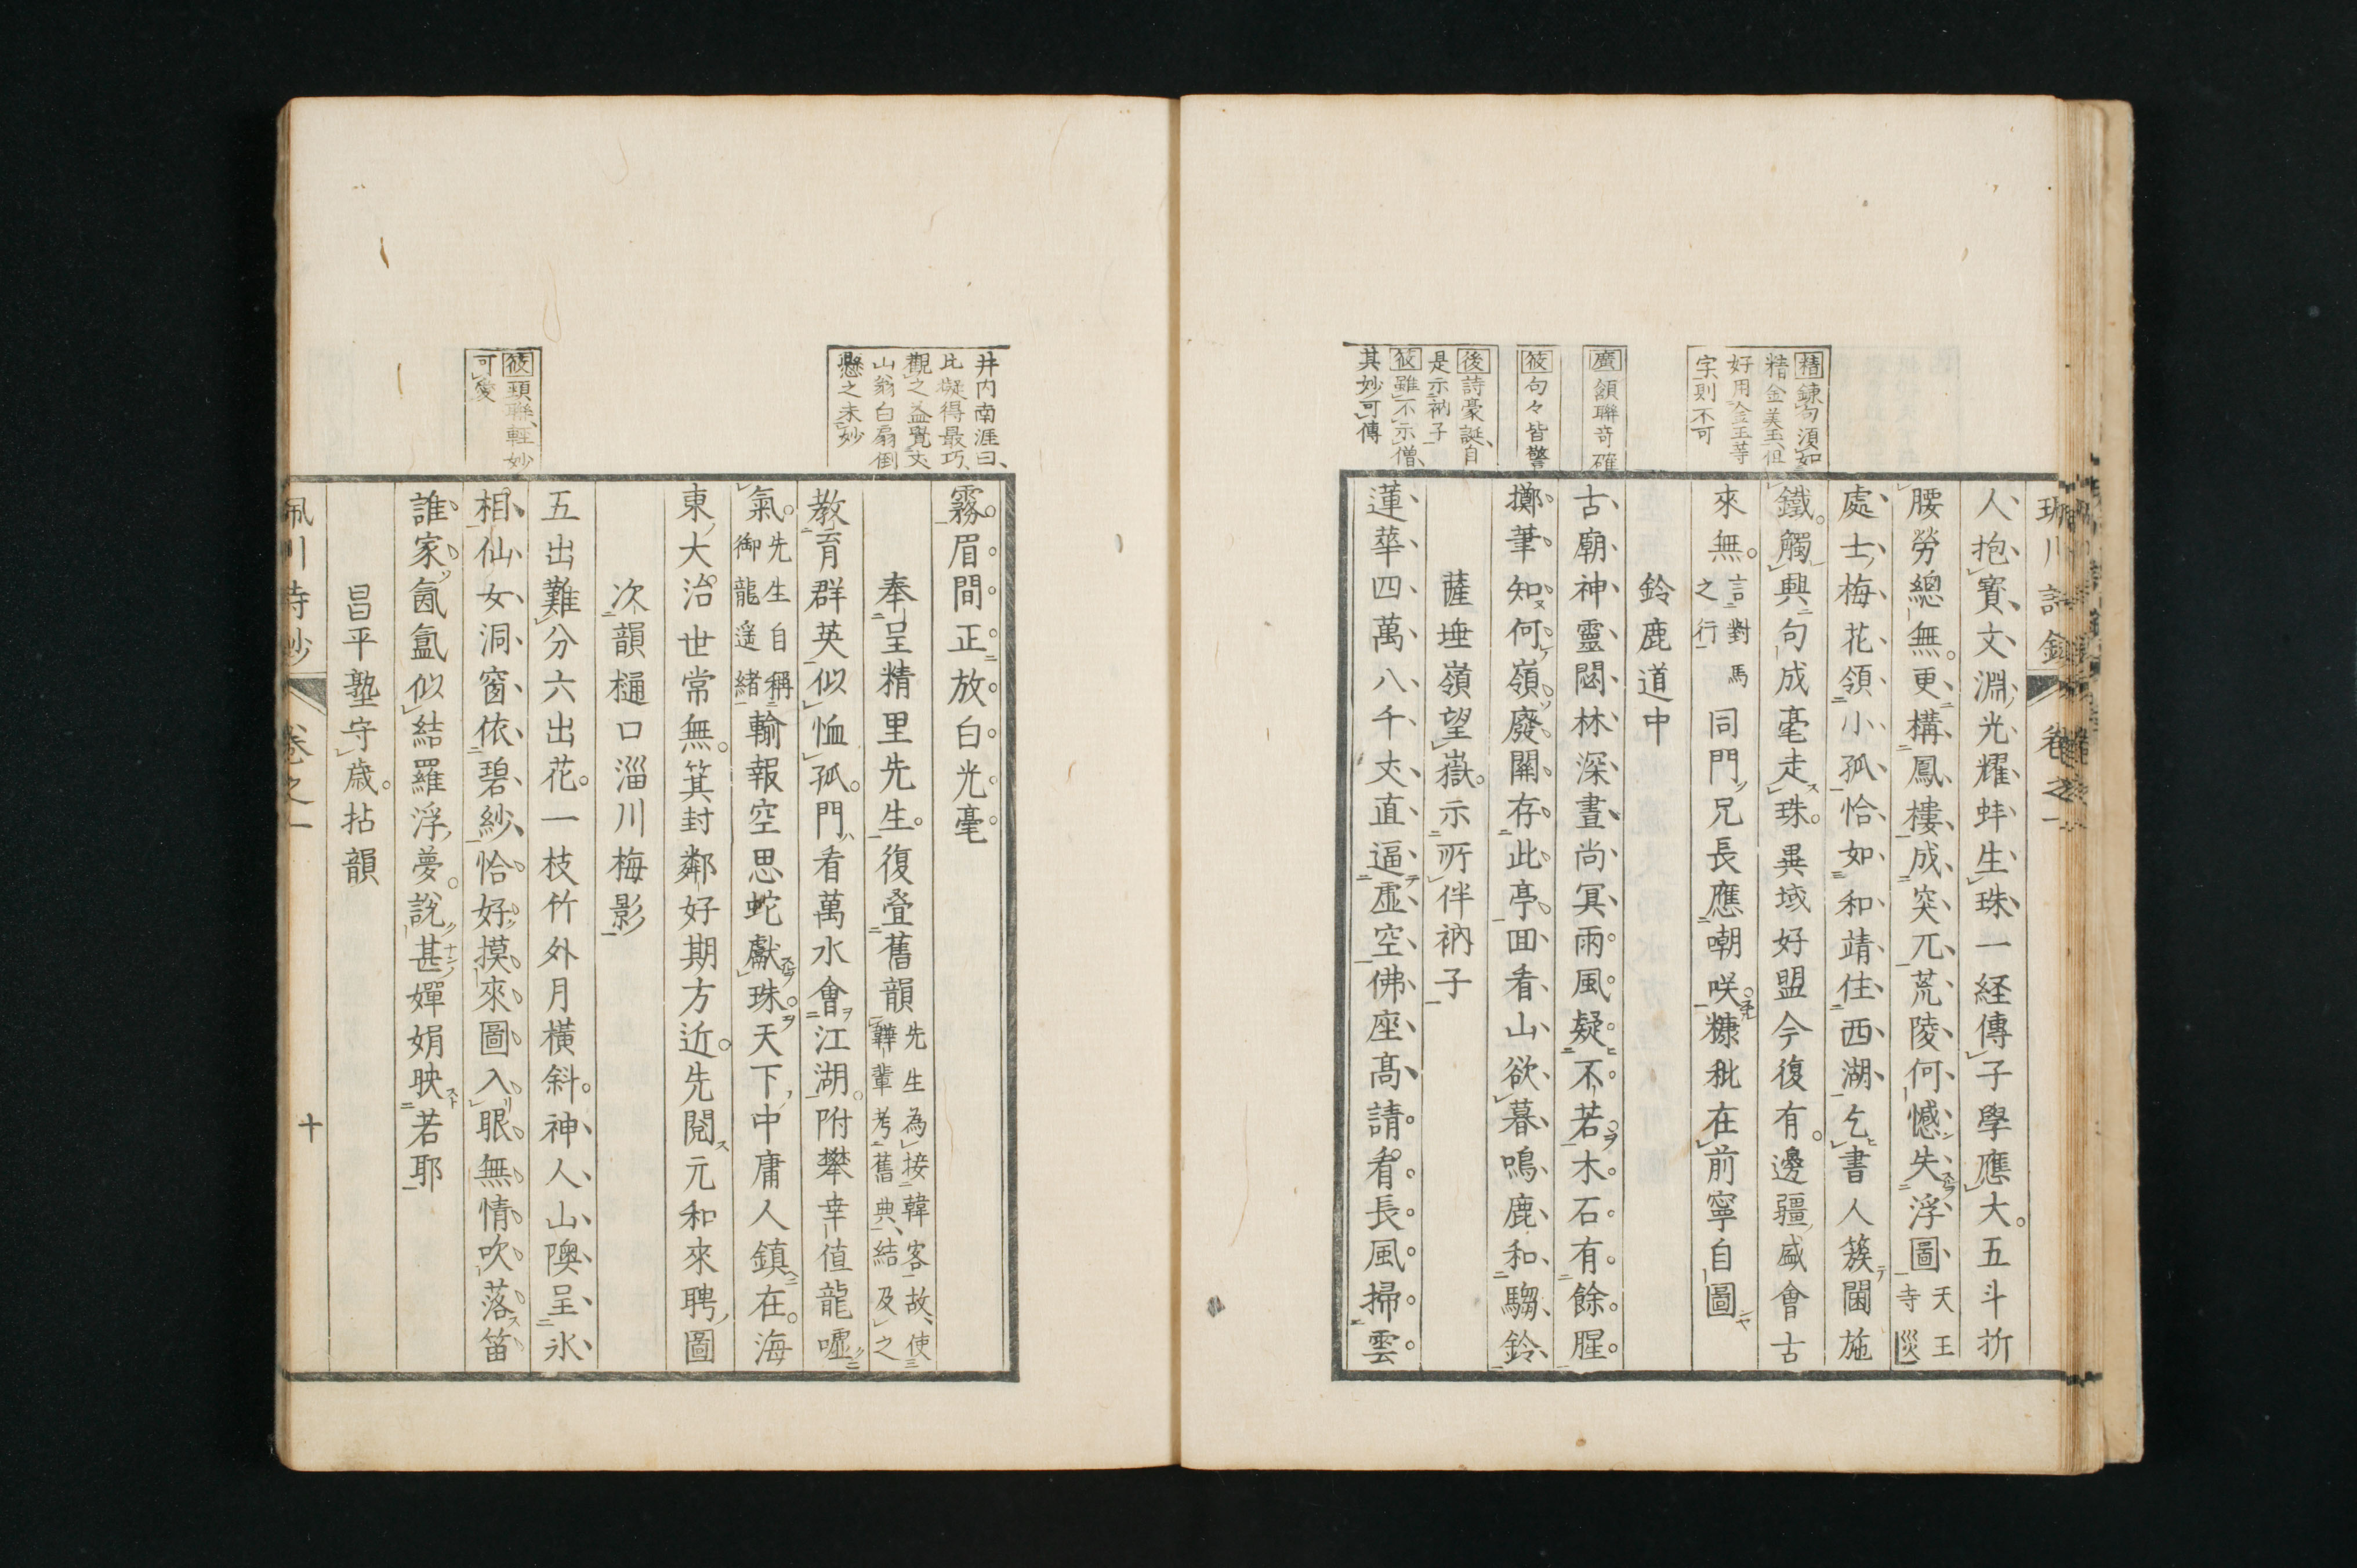 精錬句須如
精金美玉、但
好用金玉等
字則不可
廣頷聯奇確
筱句々皆警
後詩豪誕、自
是示衲子
筱雖不示僧、
其妙可傳
川詩鈔 卷之一
人抱寶文淵光耀蚌生珠一経傳子學應大。五斗折
腰勞總無。更構鳳樓成突兀荒陵何憾失浮圖天王寺災
處士梅花領小孤恰如和靖住西湖乞書人簇闔施
鐵。觸興句成毫走珠。異域好盟今復有。邊疆盛會古
來無。言對馬之行同門兄長應嘲咲。糠秕在前寧自圖
鈴鹿道中
古廟神靈閟林深晝尚冥雨風疑不若木石有餘腥。
擲筆知何嶺。廢關存此亭回看山欲暮鳴鹿和騶鈴
薩埵嶺望嶽。示所伴衲子
蓮華四萬八千丈直逼虛空佛座高請看長風掃雲
井内南涯曰、
比擬得最巧、
觀之益覺丈
山翁白扇倒
懸之未妙
筱頸聯輕妙
可愛
霧。眉間正放白光毫
奉呈精里先生。復疊舊韻先生為接韓客故、使韡輩考舊典、結及之
教育群英似恤孤。門看萬水會江湖。附攀幸值龍噓
氣。先生自稱御龍遥緒輸報空思蛇獻珠。天下中庸人鎮在。海
東大治世常無。箕封鄰好期方近。先閲元和來聘圖
次韻樋口淄川梅影
五出難分六出花。一枝竹外月橫斜。神人山隩呈氷
相仙女洞窗依碧紗恰好摸來圖入眼無情吹落笛
誰家氤氳似結羅浮夢。說甚嬋娟映若耶
昌平塾守歳。拈韻
川詩鈔 卷之一 十